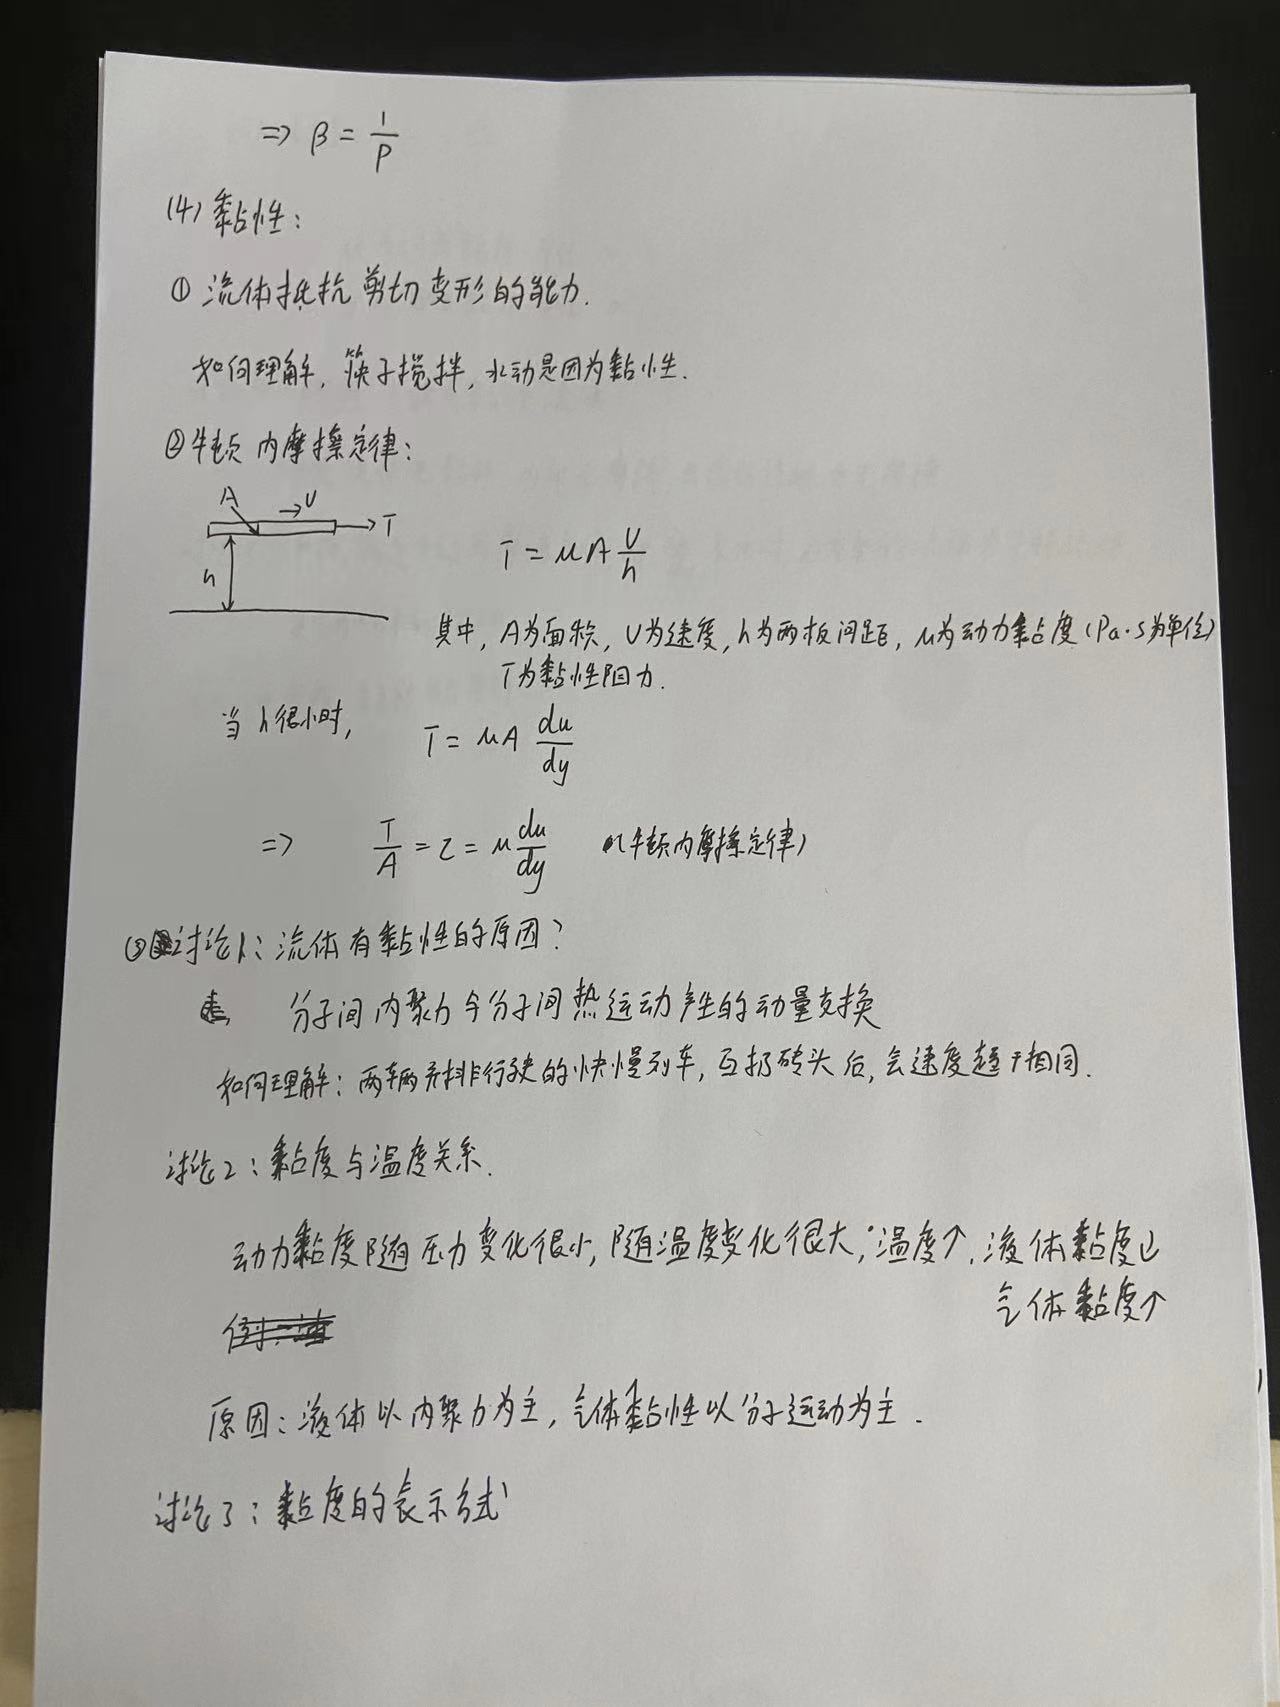 ⇒ β = 1/p
(4) 黏性:
① 流体抵抗剪切变形的能力.
如何理解, 筷子搅拌, 水动是因为黏性.
② 牛顿内摩擦定律:
A → U
→ T
h
T = μA U/h
其中, A为面积, U为速度, h为两板间距, μ为动力黏度 (Pa·s为单位)
T为黏性阻力.
当 h很小时, T = μA du/dy
⇒ T/A = τ = μ du/dy (牛顿内摩擦定律)
③ 讨论1: 流体有黏性的原因?
分子间内聚力与分子间热运动产生的动量交换
如何理解: 两辆并排行驶的快慢列车, 互扔砖头后, 会速度趋于相同.
讨论2: 黏度与温度关系.
动力黏度随压力变化很小, 随温度变化很大; 温度↑, 液体黏度↓
气体黏度↑
原因: 液体以内聚力为主, 气体黏性以分子运动为主.
讨论3: 黏度的表示方式